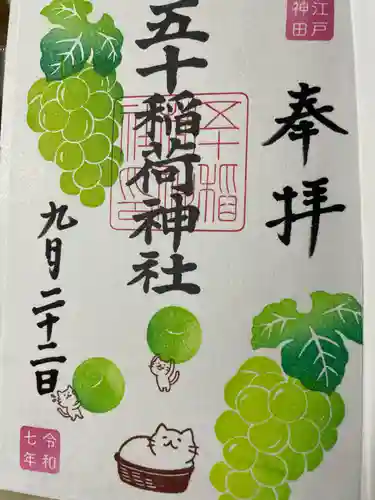 江戸
神田
奉拝
五十稲荷神社
九月二十二日
令和
七年